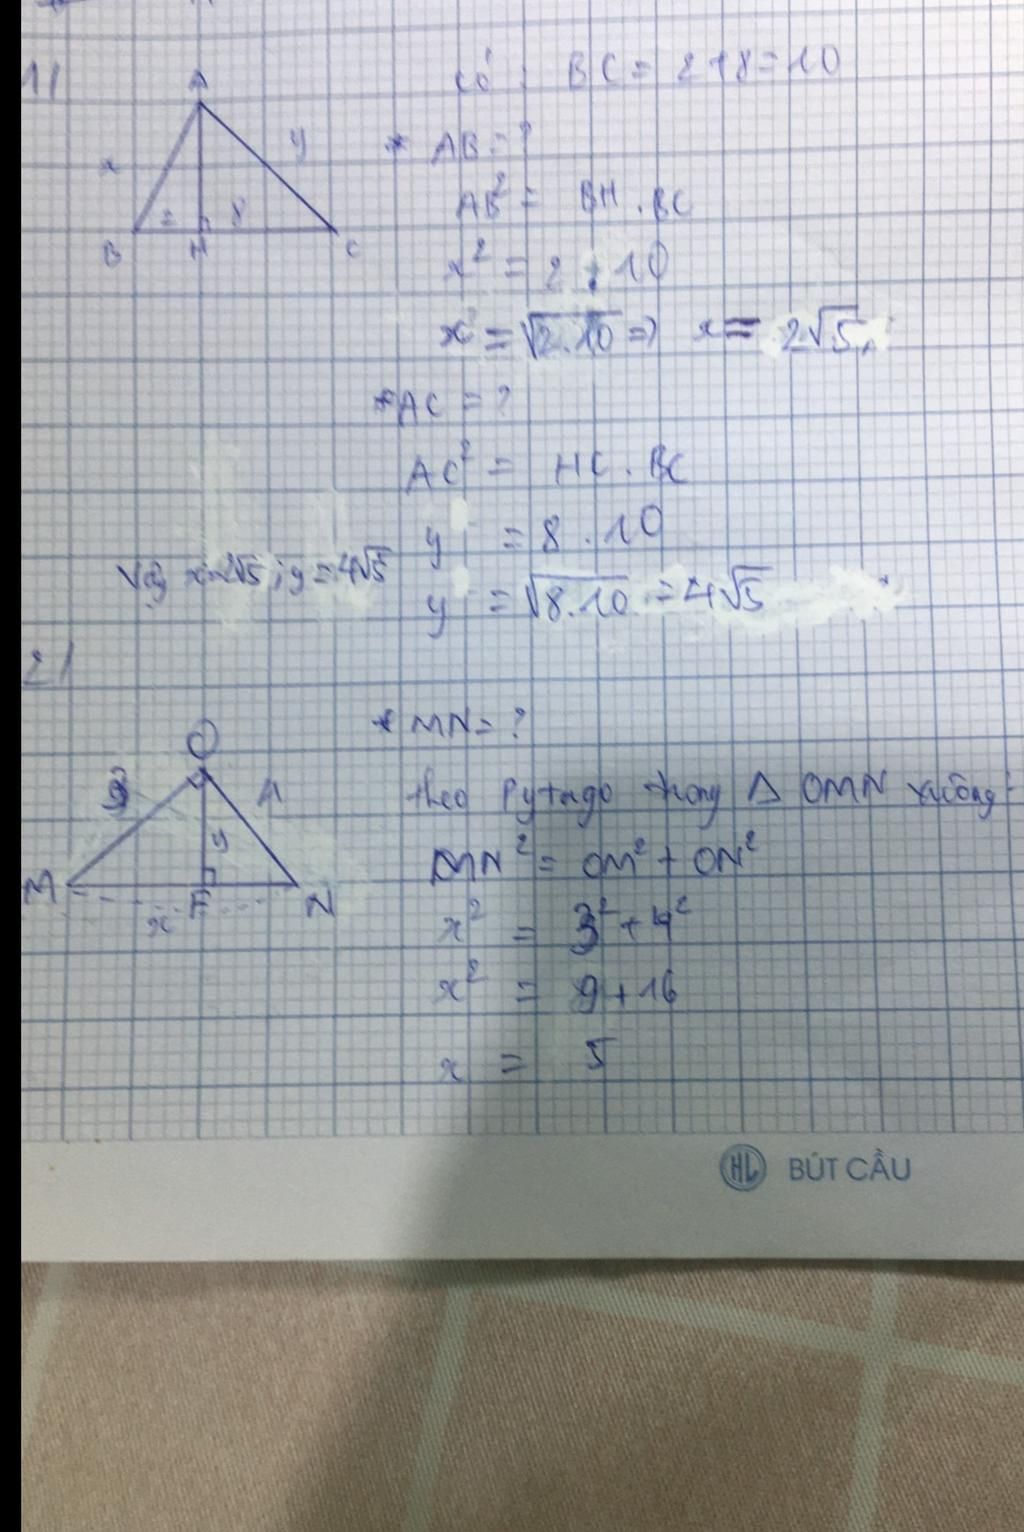 1/
A
x
y
2
8
B
H
C
Có: BC = 2+8 = 10
* AB = ?
AB² = BH . BC
x² = 2 . 10
x = √2.10 => x = 2√5
* AC = ?
AC² = HC . BC
y = 8 . 10
y = √8.10 = 4√5
Vậy x = 2√5 ; y = 4√5
2/
O
3
4
y
M
F
N
x
* MN = ?
Theo Pytago trong Δ OMN vuông
MN² = OM² + ON²
x² = 3² + 4²
x² = 9 + 16
x = 5
HL BÚT CẦU